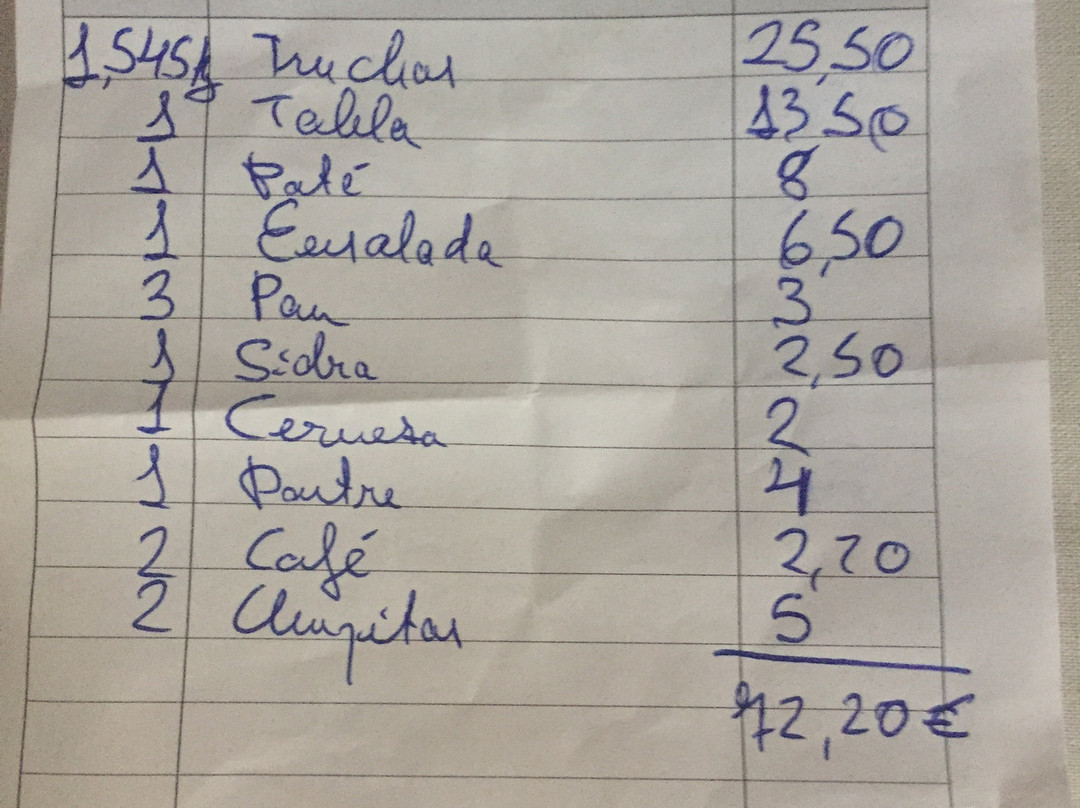 1,545kg Truchas 25,50
1 Tabla 13,50
1 Paté 8
1 Ensalada 6,50
3 Pan 3
1 Sidra 2,50
1 Cervesa 2
1 Postre 4
2 Café 2,20
2 Chupitos 5
72,20€